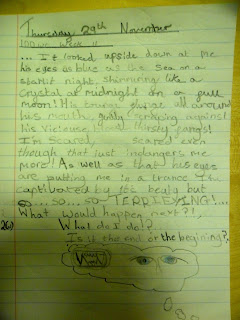 Thursday 29th November
100 wc week 11
... It looked upside down at me
his eyes as blue as the sea on a
starlit night, shimmering like a
crystal at midnight on a full
moon! His craves plunge all around
his mouth, guilty, springing against
his vicieuse blood thirsty fangs!
I'm scared, scared even
though that just indangers me
more! As well as that his eyes
are putting me in a trance I'm
captivated by its beaty but
so... so... so TERRIFYING!...
What would happen next?!,
What do I do?
Is it the end or the begining?